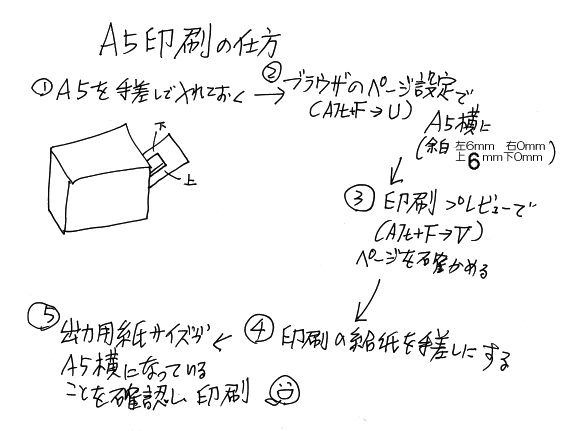 A5印刷の仕方
① A5を手差しで入れておく →
② ブラウザのページ設定で
(Alt+F→U)
A5横に
(余白 左6mm 右0mm
上6mm下0mm)
下
上
③ 印刷プレビューで
(Alt+F→V)
ページを確かめる
④ 印刷の給紙を手差しにする
⑤ 出力用紙サイズが
A5横になっている
ことを確認し印刷